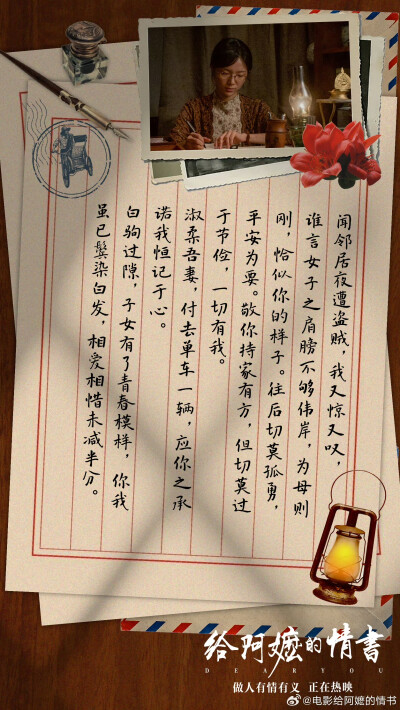 闻邻居夜遭盗贼，我又惊又叹，
谁言女子之肩膀不够伟岸，为母则
刚，恰似你的样子。往后切莫孤勇，
平安为要。敬你持家有方，但切莫过
于节俭，一切有我。
淑柔吾妻，付去单车一辆，应你之承
诺我恒记于心。
白驹过隙，子女有了青春模样，你我
虽已鬓染白发，相爱相惜未减半分。
给阿嬷的情書
DEAR YOU
做人有情有义 正在热映
@电影给阿嬷的情书